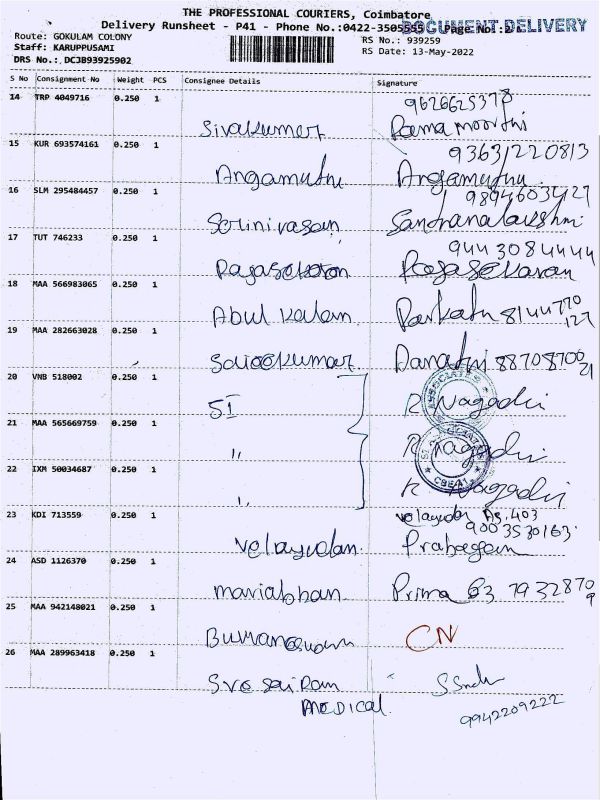 THE PROFESSIONAL COURIERS, Coimbatore
Delivery Runsheet - P41 - Phone No.:0422-3505555 Page No:2/
DOCUMENT DELIVERY
Route: GOKULAM COLONY
Staff: KARUPPUSAMI
DRS No.: DCJB93925902
RS No.: 939259
RS Date: 13-May-2022
S No Consignment No Weight PCS Consignee Details Signature
14 TRP 4049716 0.250 1
9626625378
Sivakumar Ramamoorthi
15 KUR 693574161 0.250 1
93631220813
Angamuthu Angamuthu
16 SLM 295484457 0.250 1
9894603427
Srinivasan Santhanalakshmi
17 TUT 746233 0.250 1
9443084444
Rajasekaran Rajasekaran
18 MAA 566983065 0.250 1
Abul kalam 8144770
127
19 MAA 282663028 0.250 1
8870870021
20 VNB 518002 0.250 1
SI R Nagadi
21 MAA 565669759 0.250 1
" R Nagadi
22 IXM 50034687 0.250 1
" R Nagadi
23 KDI 713559 0.250 1
Velayudan As, 403
9003530163
Velayudan
24 ASD 1126370 0.250 1
Prima 63 7932870
9
25 MAA 942148021 0.250 1
CN
26 MAA 289963418 0.250 1
Sre Sai Ram
MEDICAL.
9942209222